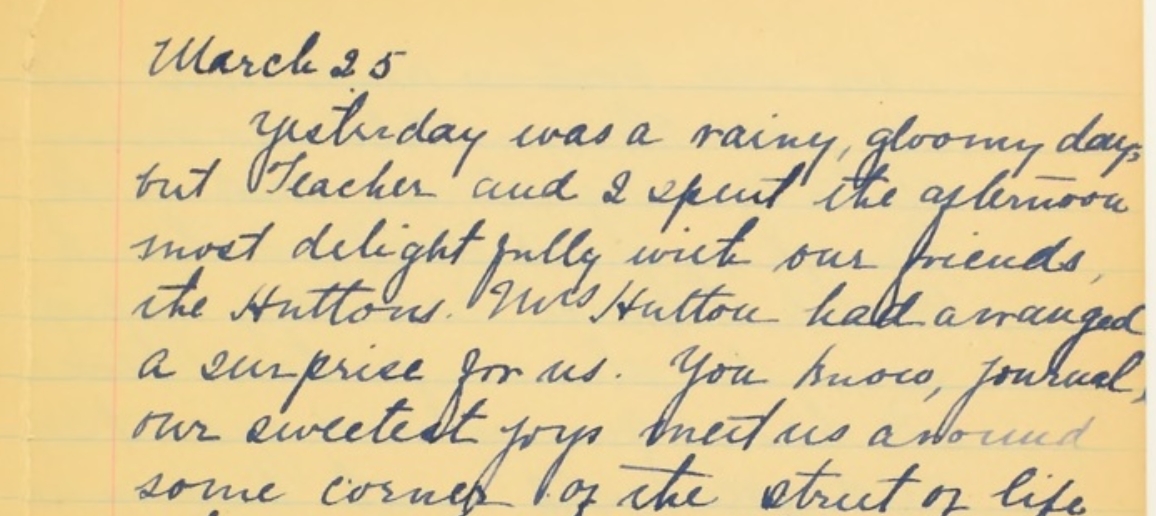 March 25
Yesterday was a rainy, gloomy day,
but Teacher and I spent the afternoon
most delightfully with our friends,
the Huttons. Mrs Hutton had arranged
a surprise for us. You know, journal,
our sweetest joys meet us around
some corner of the street of life